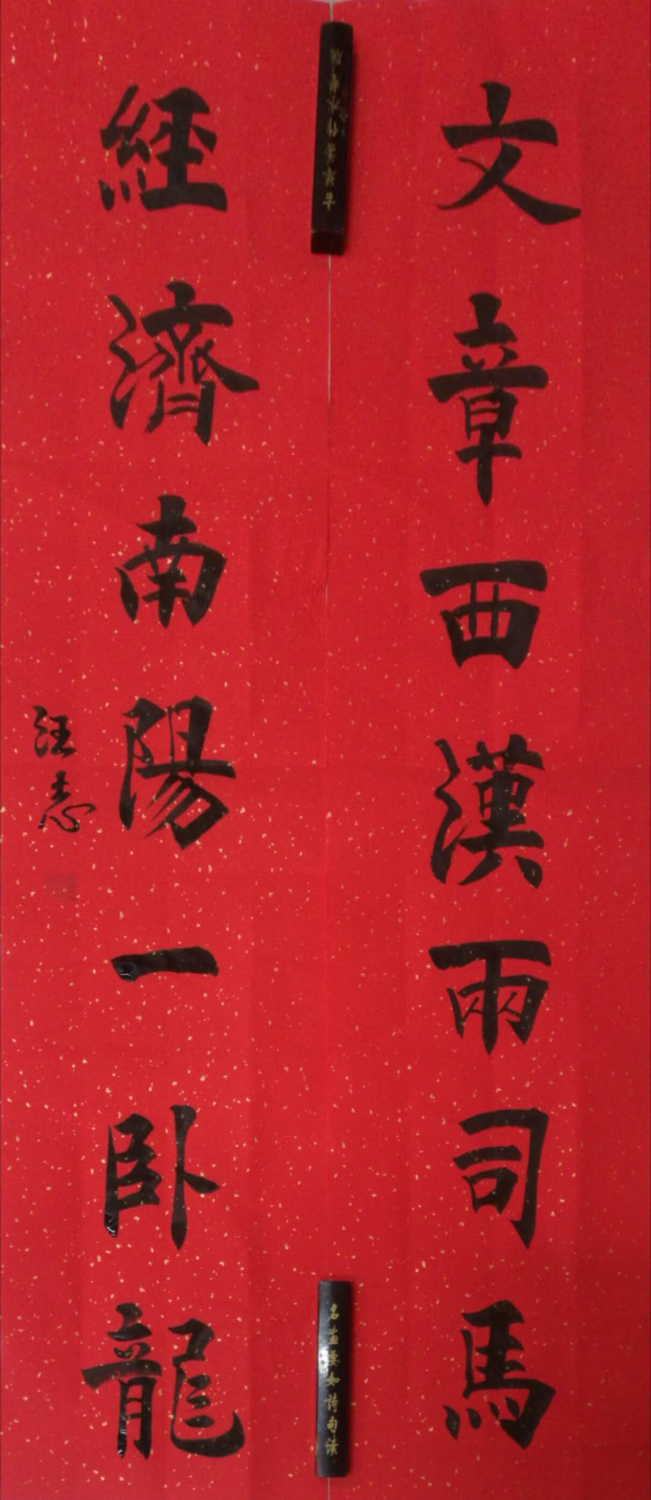 文章西漢兩司馬
經濟南陽一卧龍
汪志